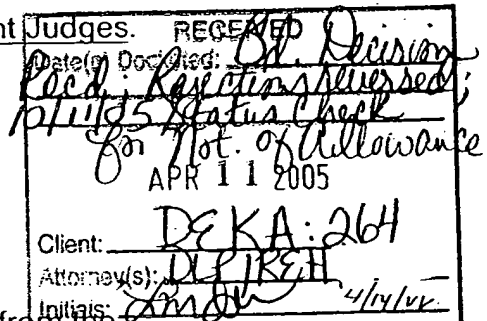 nt Judges.
RECEIVED
Date(s) Docketed: Bd. Decision
Rec'd, Rejections reversed;
10/11/05 Status Check
for Not. of Allowance
APR 11 2005
Client: DEKA: 264
Attorney(s):
Initials:
from the